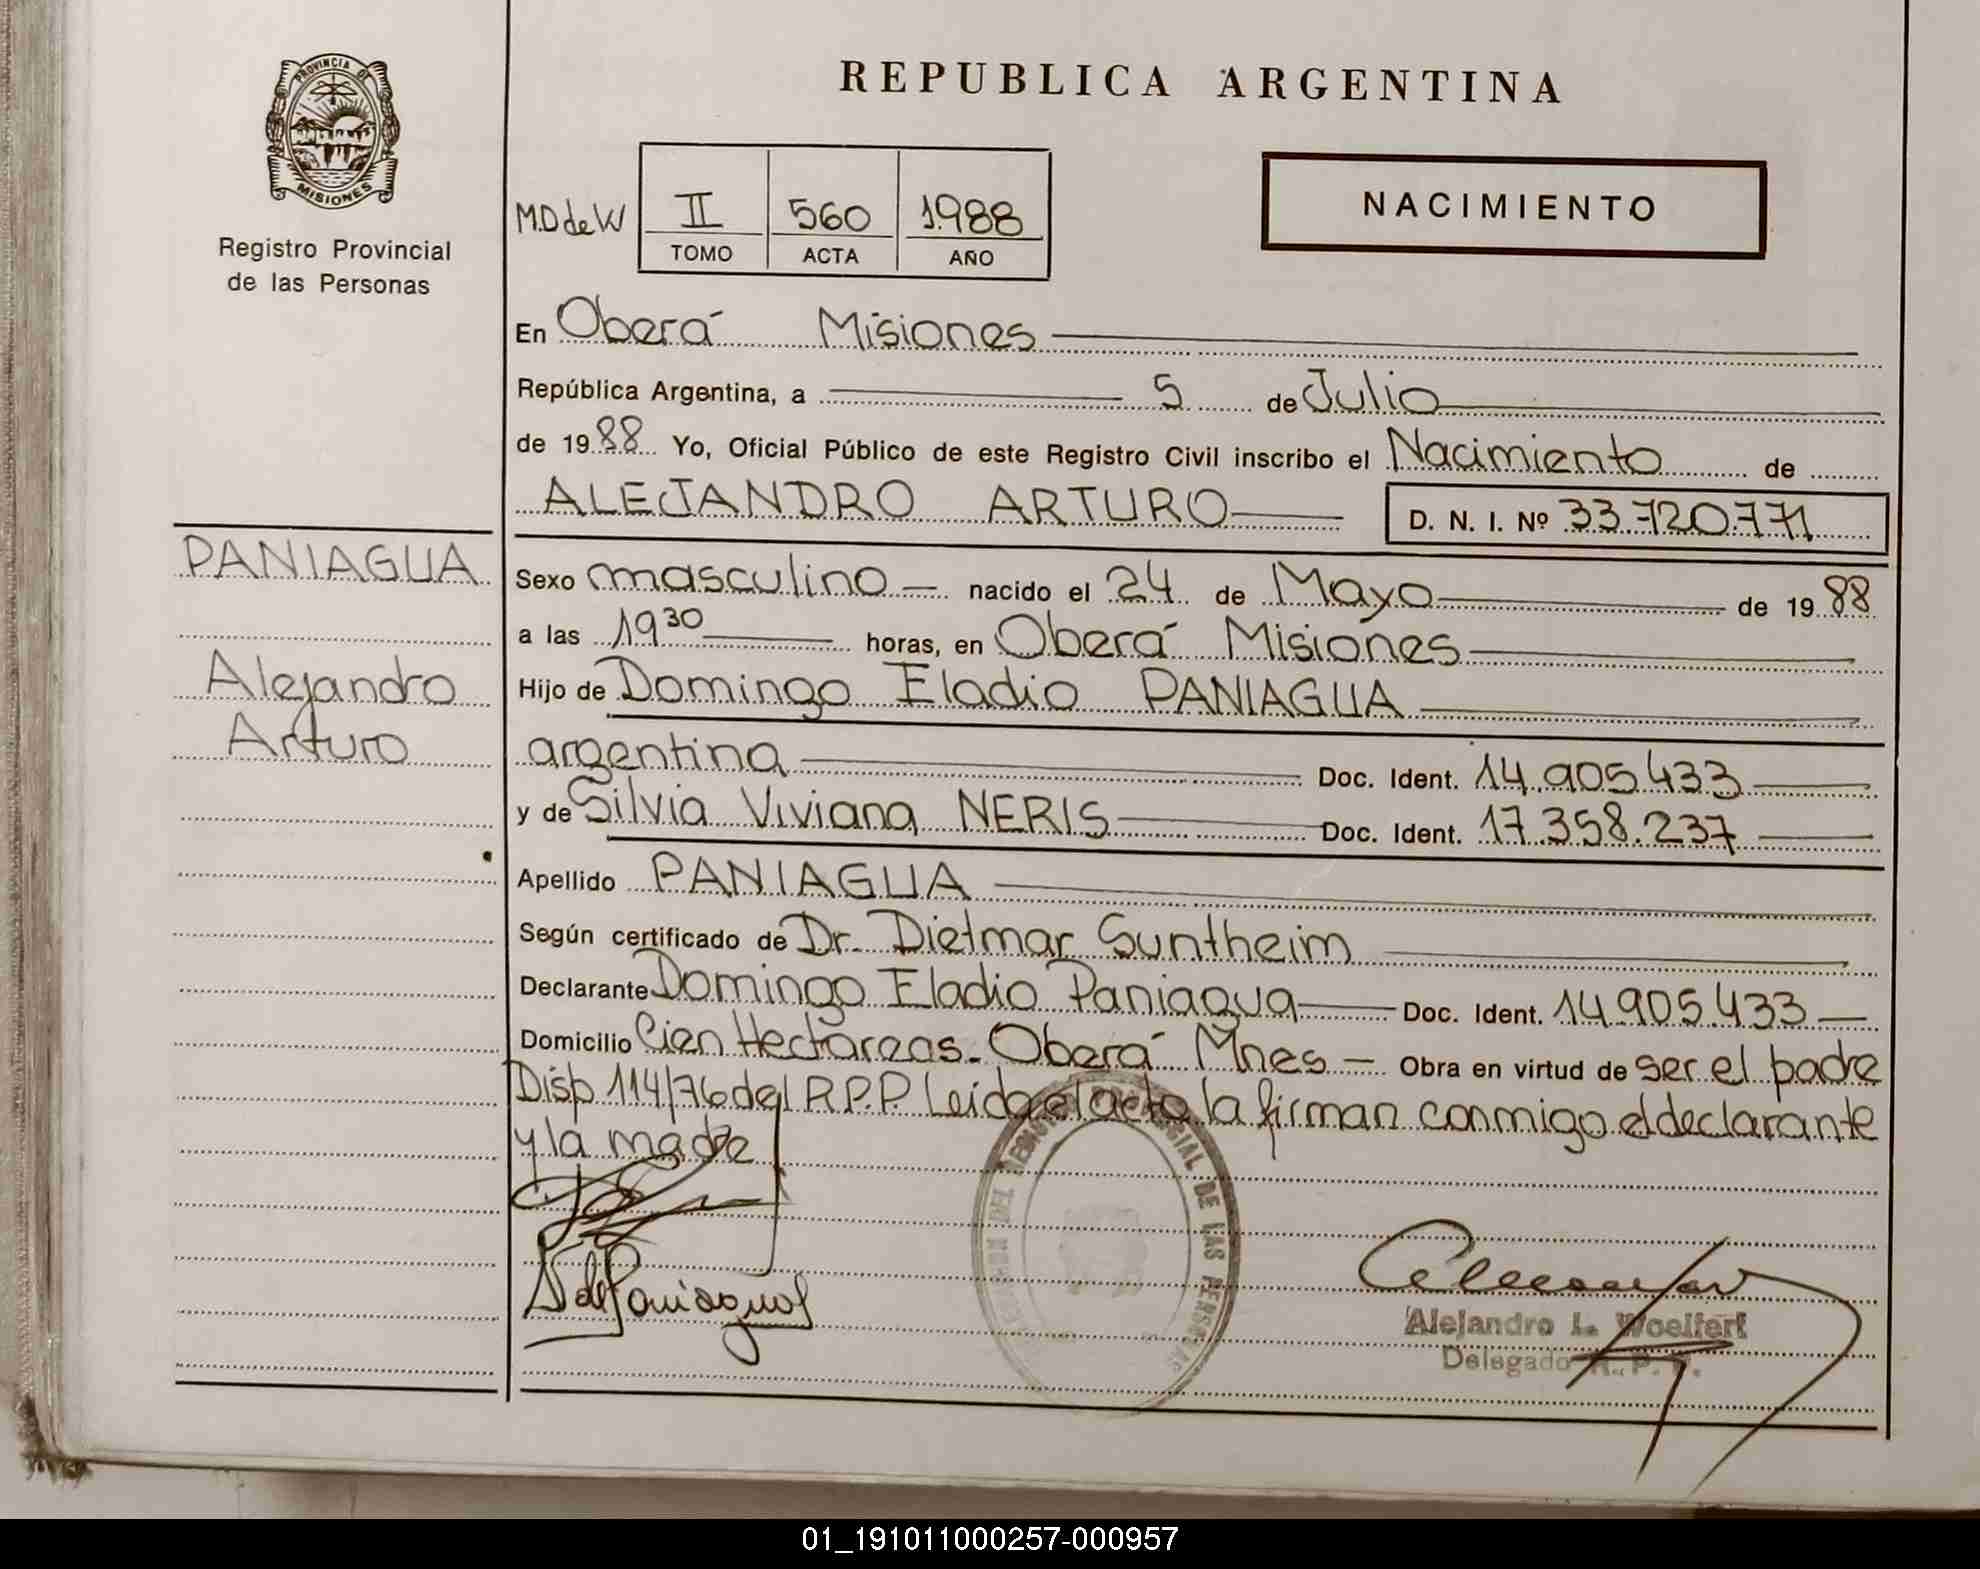 REPUBLICA ARGENTINA
PROVINCIA DE MISIONES
Registro Provincial
de las Personas
M.D de W
II 560 1988
TOMO ACTA AÑO
NACIMIENTO
En Oberá Misiones
República Argentina, a 5 de Julio
de 1988 Yo, Oficial Público de este Registro Civil inscribo el Nacimiento de
ALEJANDRO ARTURO D. N. I. Nº 33.720.771
PANIAGUA
Alejandro
Arturo
Sexo masculino nacido el 24 de Mayo de 1988
a las 19 30 horas, en Oberá Misiones
Hijo de Domingo Eladio PANIAGUA
argentina Doc. Ident. 14.905.433
y de Silvia Viviana NERIS Doc. Ident. 17.358.237
Apellido PANIAGUA
Según certificado de Dr. Dietmar Suntheim
Declarante Domingo Eladio Paniagua Doc. Ident. 14.905.433
Domicilio Cien Hectáreas - Oberá Mnes - Obra en virtud de ser el padre
Disp 114/76 del R.P.P. Leida el acta la firman conmigo el declarante
y la madre
DEL REGISTRO PROVINCIAL DE LAS PERSONAS
S de Paniagua
Alejandro L. Woelfert
Delegado R. P. P.
01_191011000257-000957